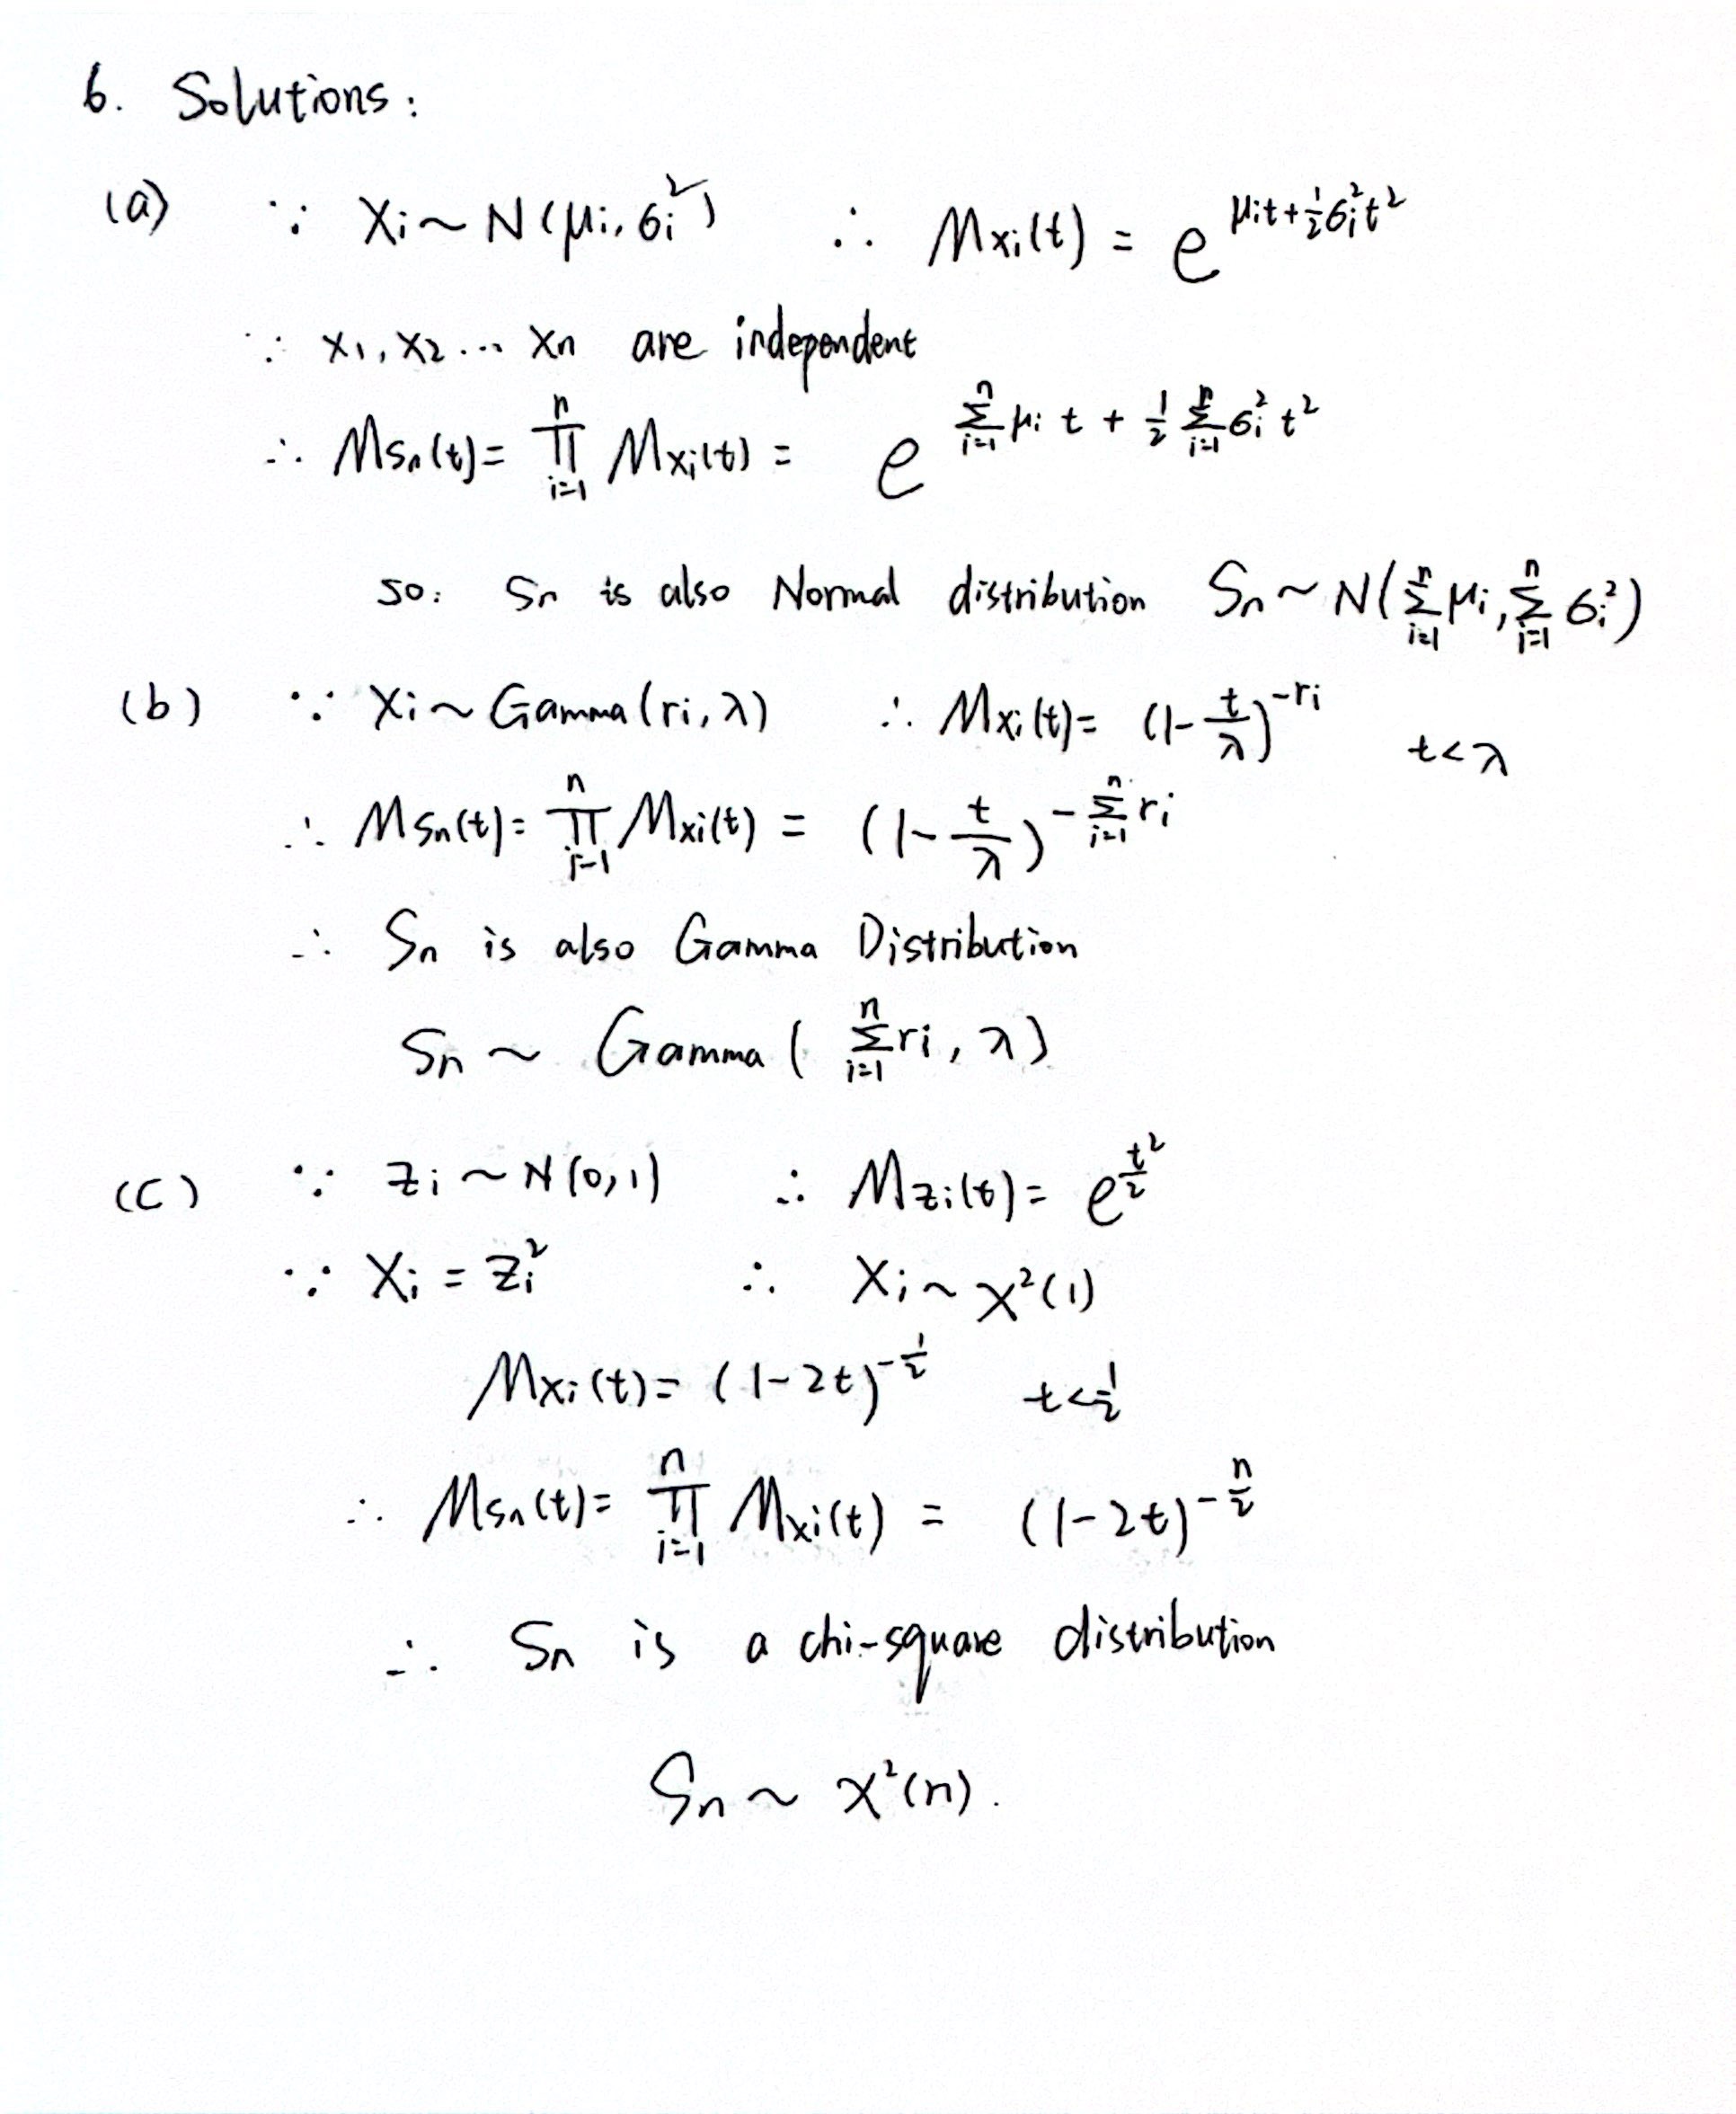 6. Solutions:
(a) ∵ Xi ~ N(μi, σi²) ∴ Mxi(t) = e^(μit + ½σi²t²)
∵ x1, x2 ... xn are independent
∴ Msn(t) = ∏_{i=1}^{n} Mxi(t) = e^(∑_{i=1}^{n} μi t + ½ ∑_{i=1}^{n} σi² t²)
so: Sn is also Normal distribution Sn ~ N(∑_{i=1}^{n} μi, ∑_{i=1}^{n} σi²)
(b) ∵ Xi ~ Gamma(ri, λ) ∴ Mxi(t) = (1 - t/λ)^(-ri) t < λ
∴ Msn(t) = ∏_{i=1}^{n} Mxi(t) = (1 - t/λ)^(-∑_{i=1}^{n} ri)
∴ Sn is also Gamma Distribution
Sn ~ Gamma(∑_{i=1}^{n} ri, λ)
(c) ∵ Zi ~ N(0,1) ∴ Mzi(t) = e^(t²/2)
∵ Xi = Zi² ∴ Xi ~ χ²(1)
Mxi(t) = (1-2t)^(-1/2) t < 1/2
∴ Msn(t) = ∏_{i=1}^{n} Mxi(t) = (1-2t)^(-n/2)
∴ Sn is a chi-square distribution
Sn ~ χ²(n).